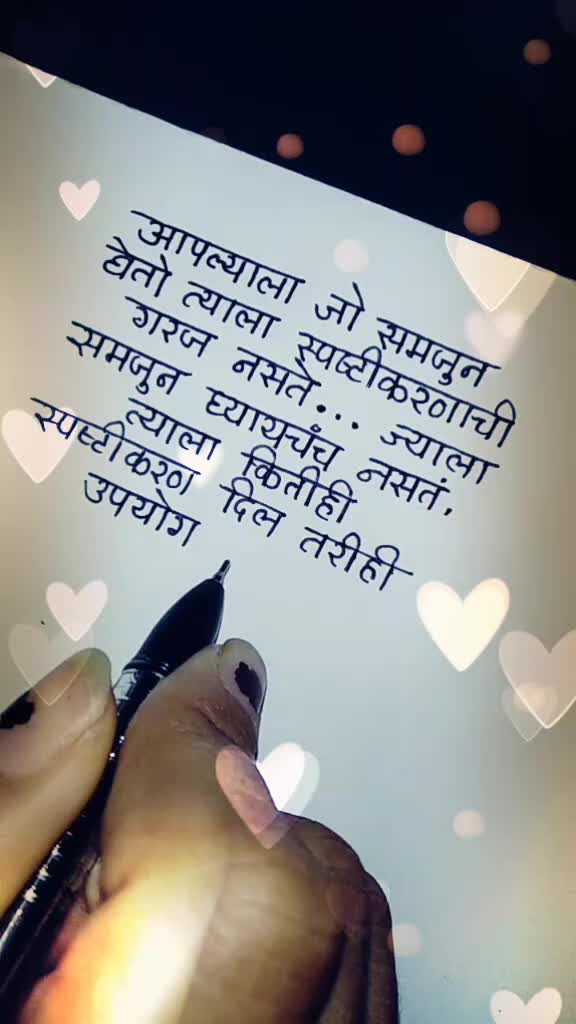 आपल्याला जो समजुन
घेतो त्याला स्पष्टीकरणाची
गरज नसते... ज्याला
समजुन घ्यायचंच नसतं.
त्याला कितीही
स्पष्टीकरण दिल तरीही
उपयोग